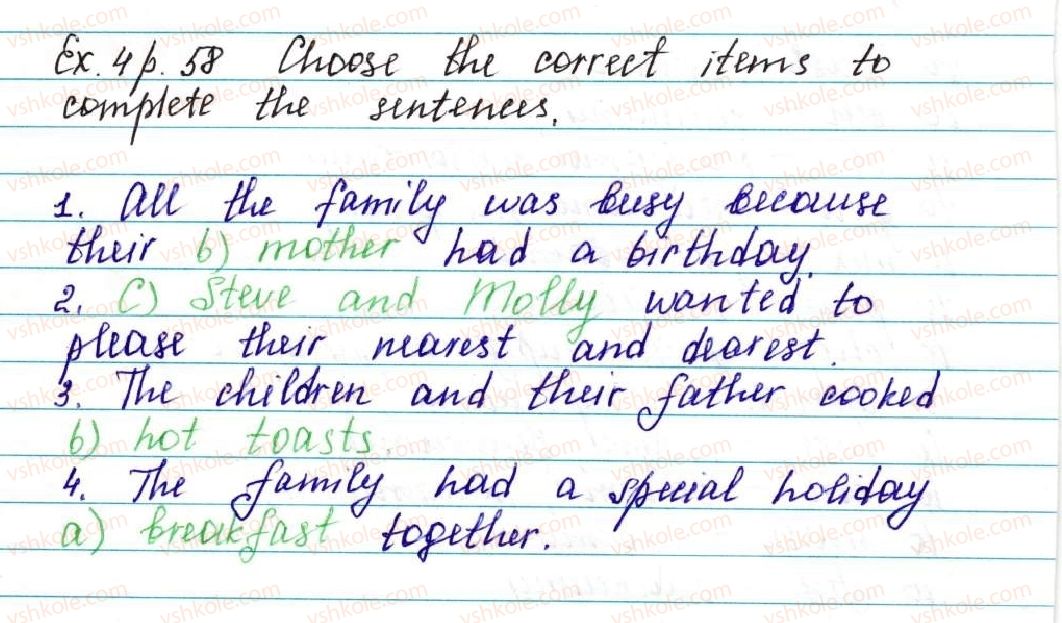 Ex. 4 p. 58 Choose the correct items to
complete the sentences.
1. All the family was busy because
their b) mother had a birthday.
2. c) Steve and Molly wanted to
please their nearest and dearest.
3. The children and their father cooked
b) hot toasts.
4. The family had a special holiday
a) breakfast together.